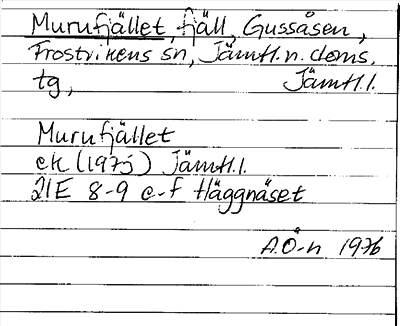 Murufjället, fjäll, Gussåsen,
Frostvikens sn, Jämtl. n. doms.
tg, Jämtl. l.
Murufjället
ek (1975) Jämtl. l.
21E 8-9 e-f Häggnäset
A.Ö-n 1976